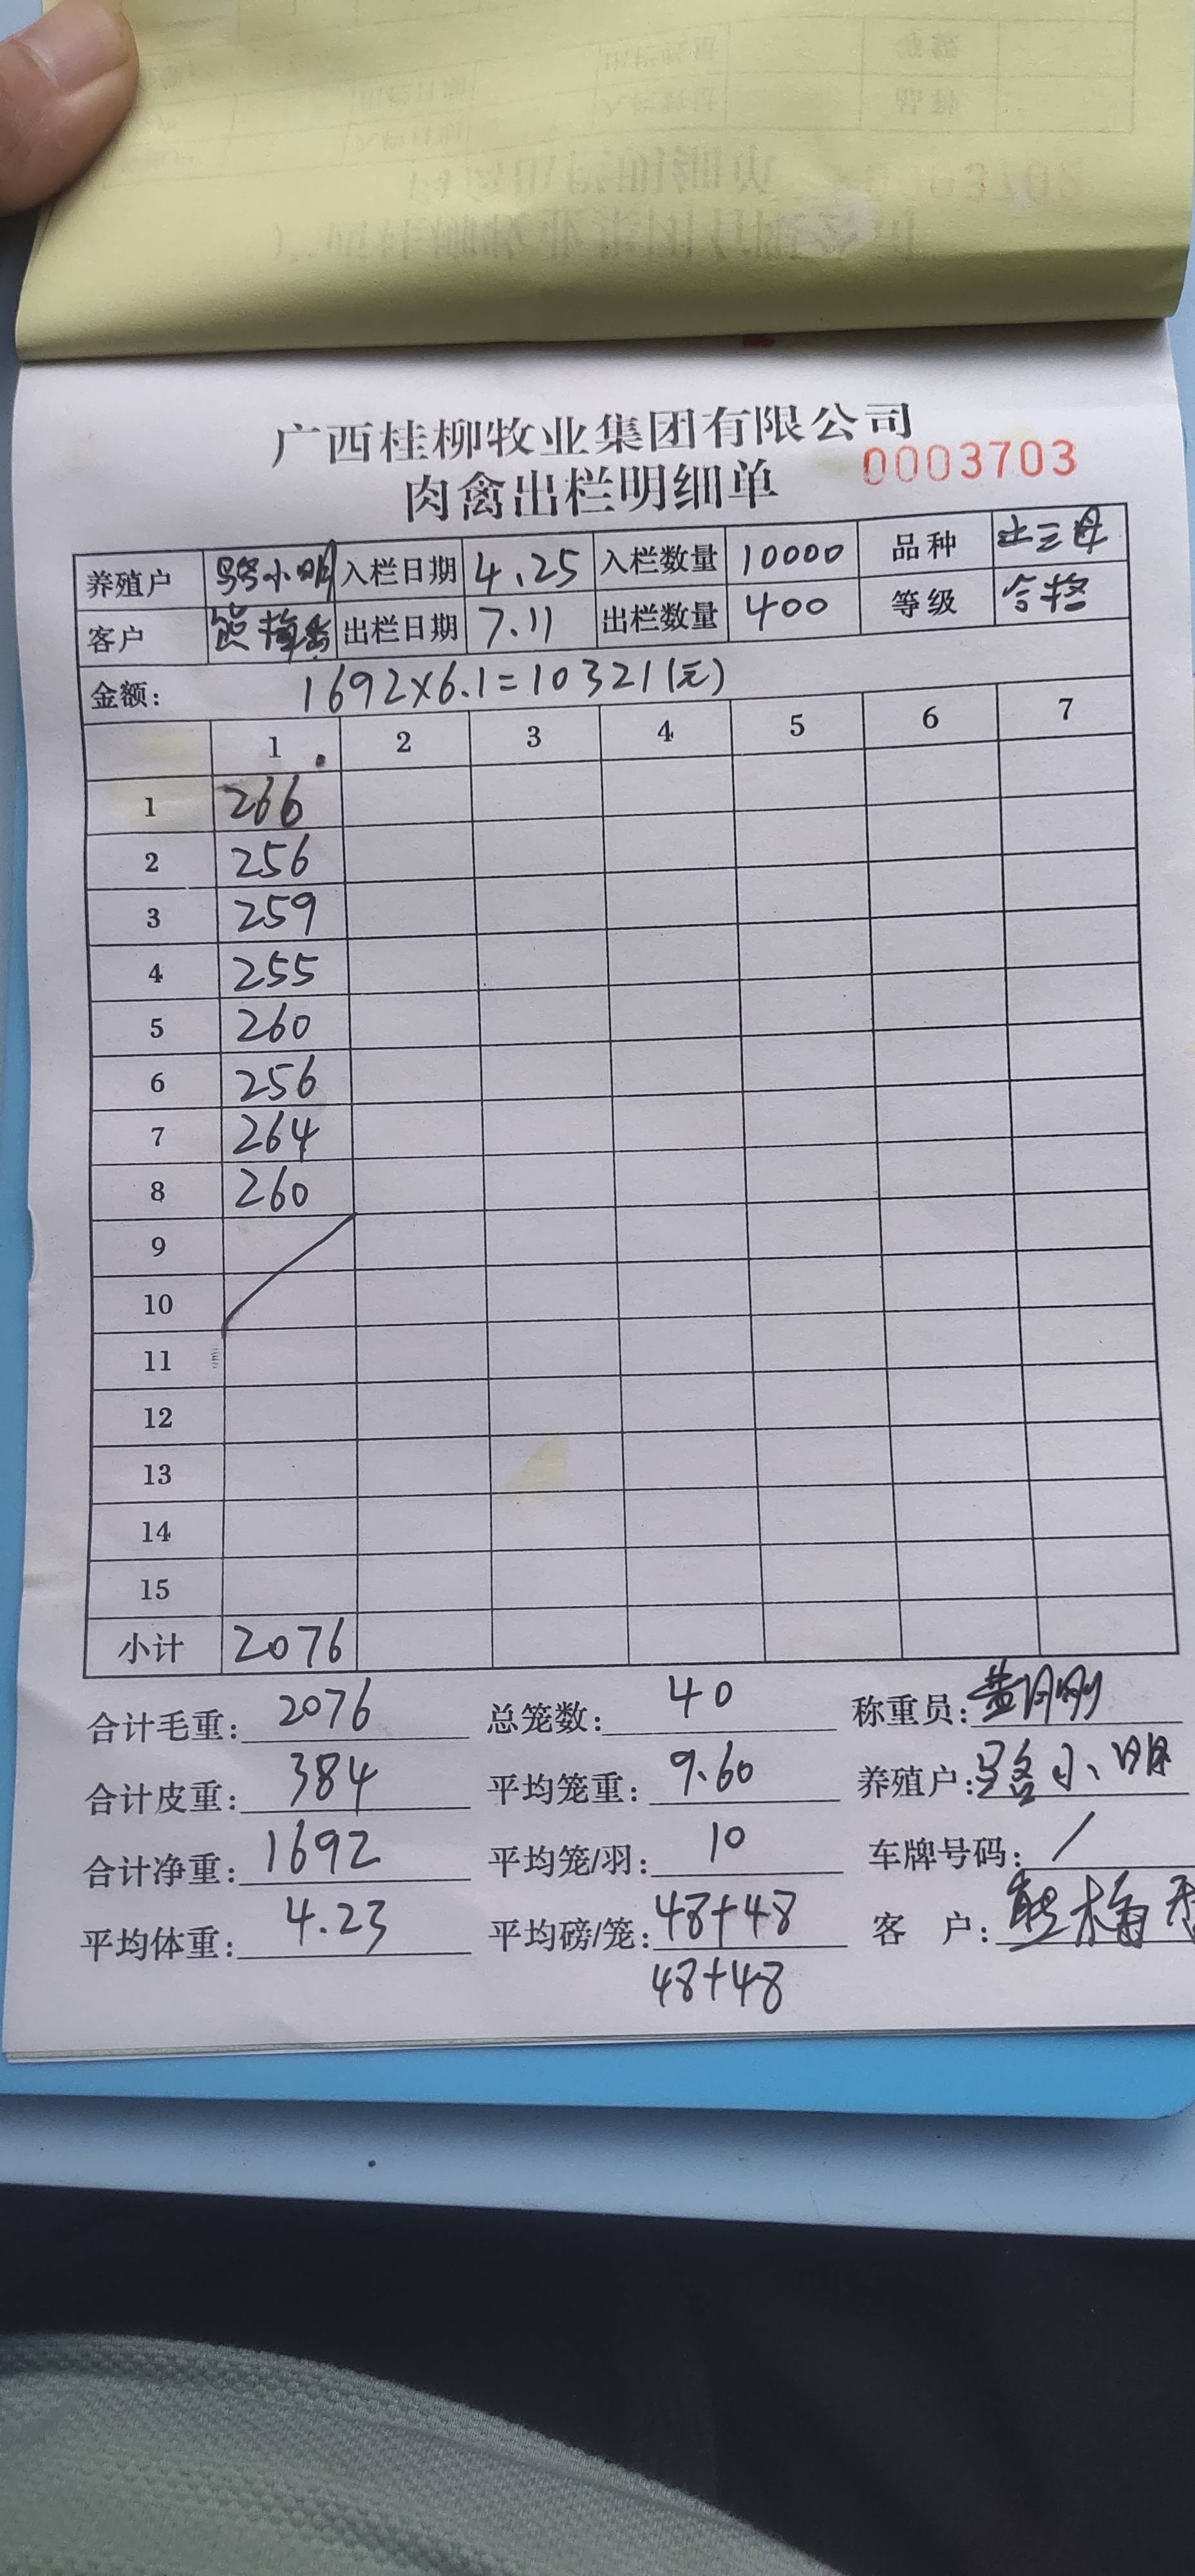 广西桂柳牧业集团有限公司
肉禽出栏明细单 0003703
养殖户 骆小明 入栏日期 4.25 入栏数量 10000 品种 土三母
客户 熊梅香 出栏日期 7.11 出栏数量 400 等级 合格
金额: 1692×6.1=10321(元)
1 2 3 4 5 6 7
1 266
2 256
3 259
4 255
5 260
6 256
7 264
8 260
9
10
11
12
13
14
15
小计 2076
合计毛重: 2076 总笼数: 40 称重员:
合计皮重: 384 平均笼重: 9.60 养殖户: 骆小明
合计净重: 1692 平均笼/羽: 10 车牌号码: /
平均体重: 4.23 平均磅/笼: 48+48 客 户: 熊梅香
48+48